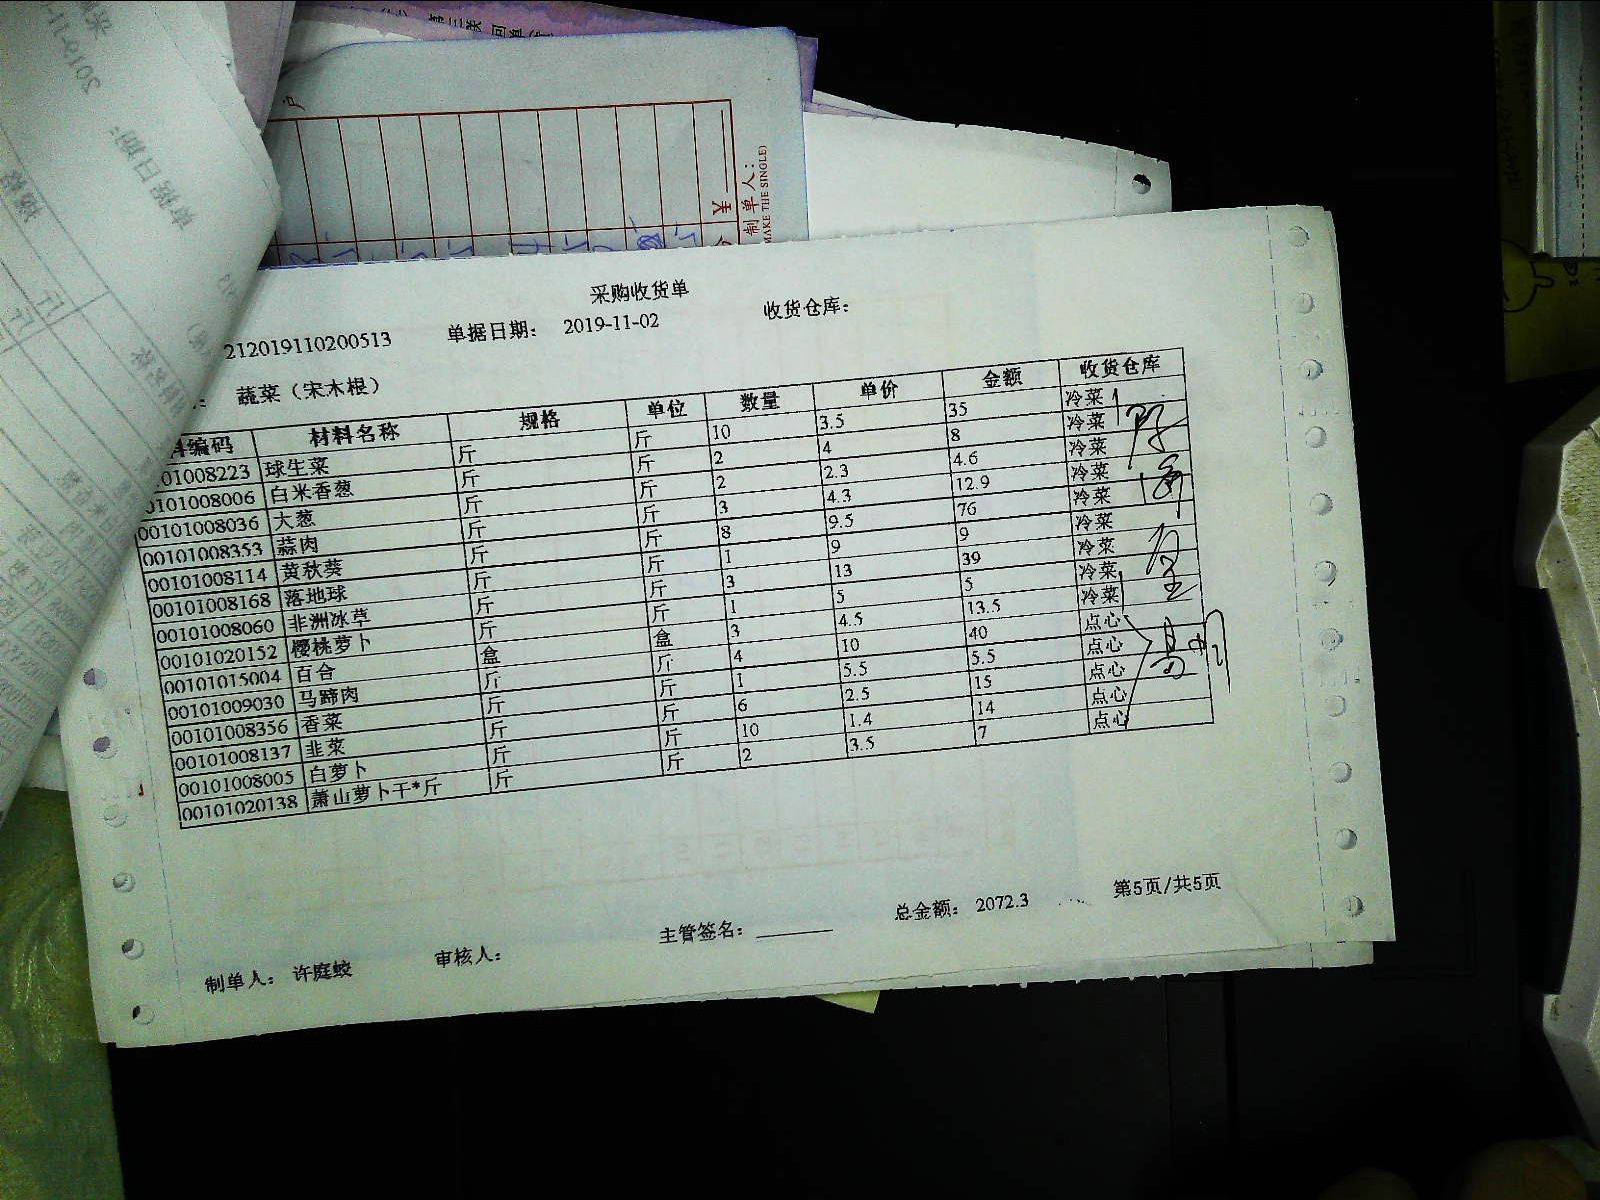 第三联 回单
制单人:
MAKE THE SINGLE)
¥
单据日期:
采购收货单
212019110200513 单据日期: 2019-11-02 收货仓库:
: 蔬菜（宋木根）
料编码 材料名称 规格 单位 数量 单价 金额 收货仓库
0101008223 球生菜 斤 斤 10 3.5 35 冷菜
0101008006 白米香葱 斤 斤 2 4 8 冷菜
00101008036 大葱 斤 斤 2 2.3 4.6 冷菜
00101008353 蒜肉 斤 斤 3 4.3 12.9 冷菜
00101008114 黄秋葵 斤 斤 8 9.5 76 冷菜
00101008168 落地球 斤 斤 1 9 9 冷菜
00101008060 非洲冰草 斤 斤 3 13 39 冷菜
00101020152 樱桃萝卜 斤 斤 1 5 5 冷菜
00101015004 百合 盒 盒 3 4.5 13.5 冷菜
00101009030 马蹄肉 斤 斤 4 10 40 点心
00101008356 香菜 斤 斤 1 5.5 5.5 点心
00101008137 韭菜 斤 斤 6 2.5 15 点心
00101008005 白萝卜 斤 斤 10 1.4 14 点心
00101020138 萧山萝卜干*斤 斤 斤 2 3.5 7 点心
制单人: 许庭蛟 审核人: 主管签名: 总金额: 2072.3 第5页/共5页